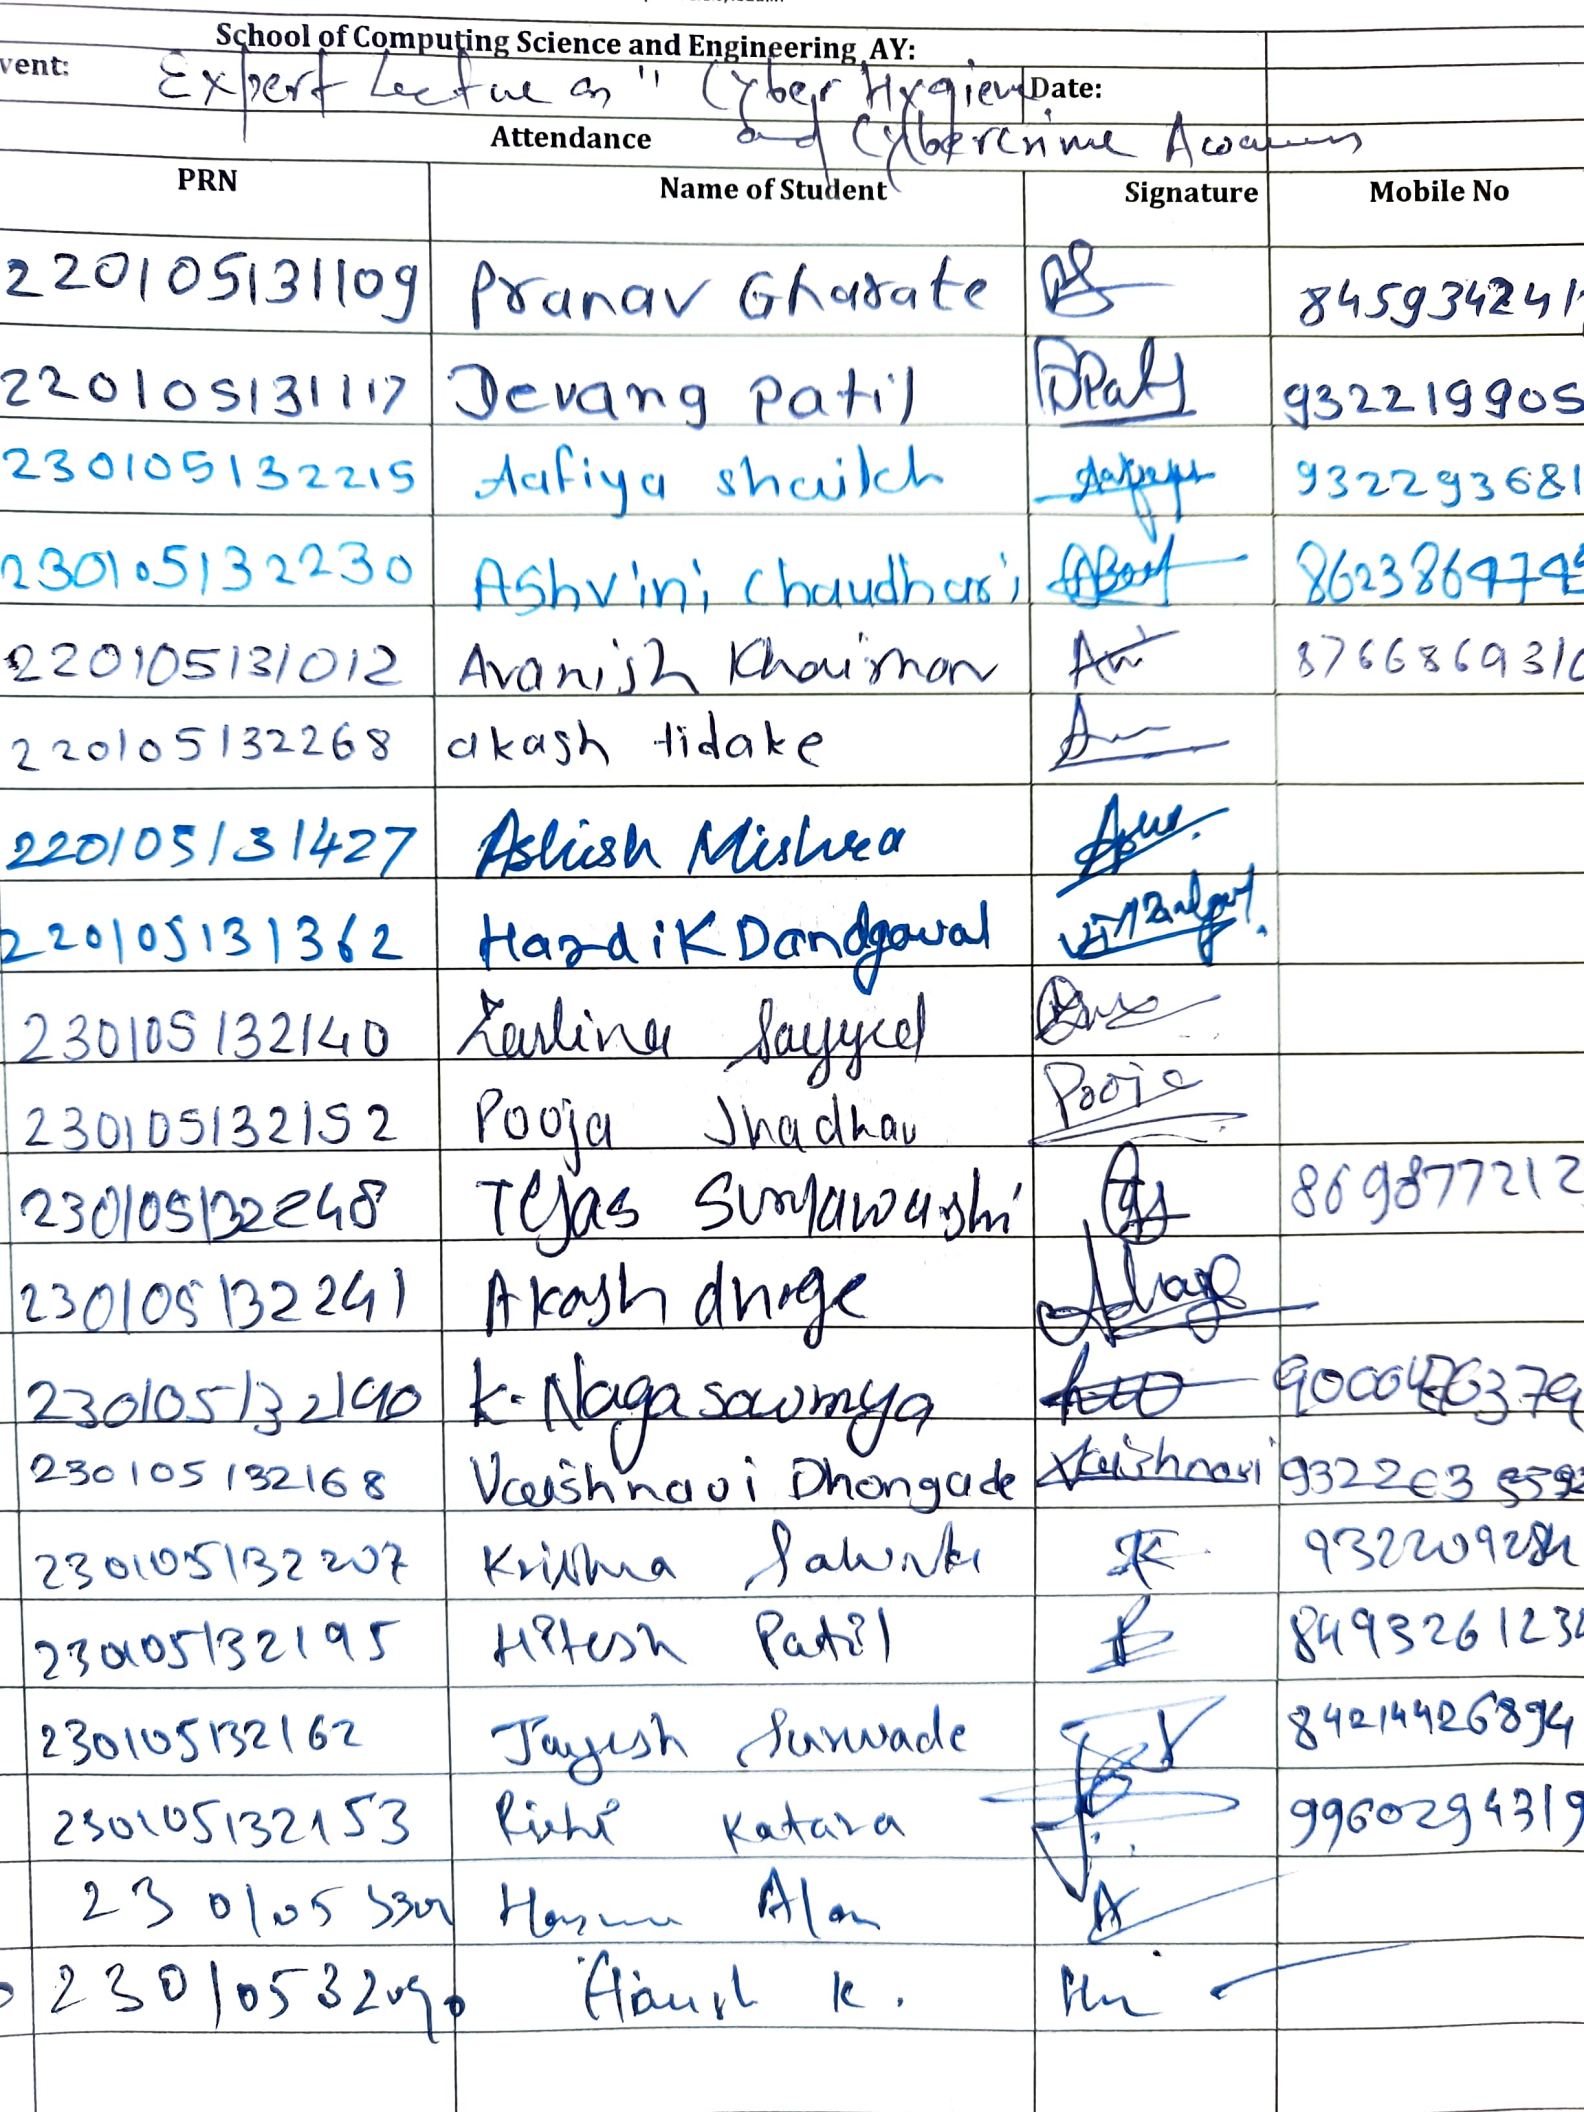 School of Computing Science and Engineering AY:
vent: Expert Lecture on " Cyber Hygiene Date:
Attendance and Cybercrime Awareness
PRN Name of Student Signature Mobile No
220105131109 Pranav Gharate 845934241
220105131117 Devang Patil DPatil 932219905
230105132215 Aafiya shaikh 932293681
230105132230 Ashvini Chaudhari
220105131012 Avanish Khairnar 876686931
220105132268 akash tidake
220105131427 Ashish Mishra
220105131362 Hardik Dandgaval
230105132140 Zarlina Sayyed
230105132152 Pooja Jhadhav Pooja
230105132248 Tejas Suryawanshi 869877212
230105132241 Akash dhage
230105132190 K. Naga sowmya
230105132168 Vaishnavi Dhongade Vaishnavi
230105132207 Krishna
230105132195 Hitesh Patil 849326123
230105132162 Jayesh Surwade
230105132153 Rishi Katara 9960294319
230105 Alam
2301053 K.